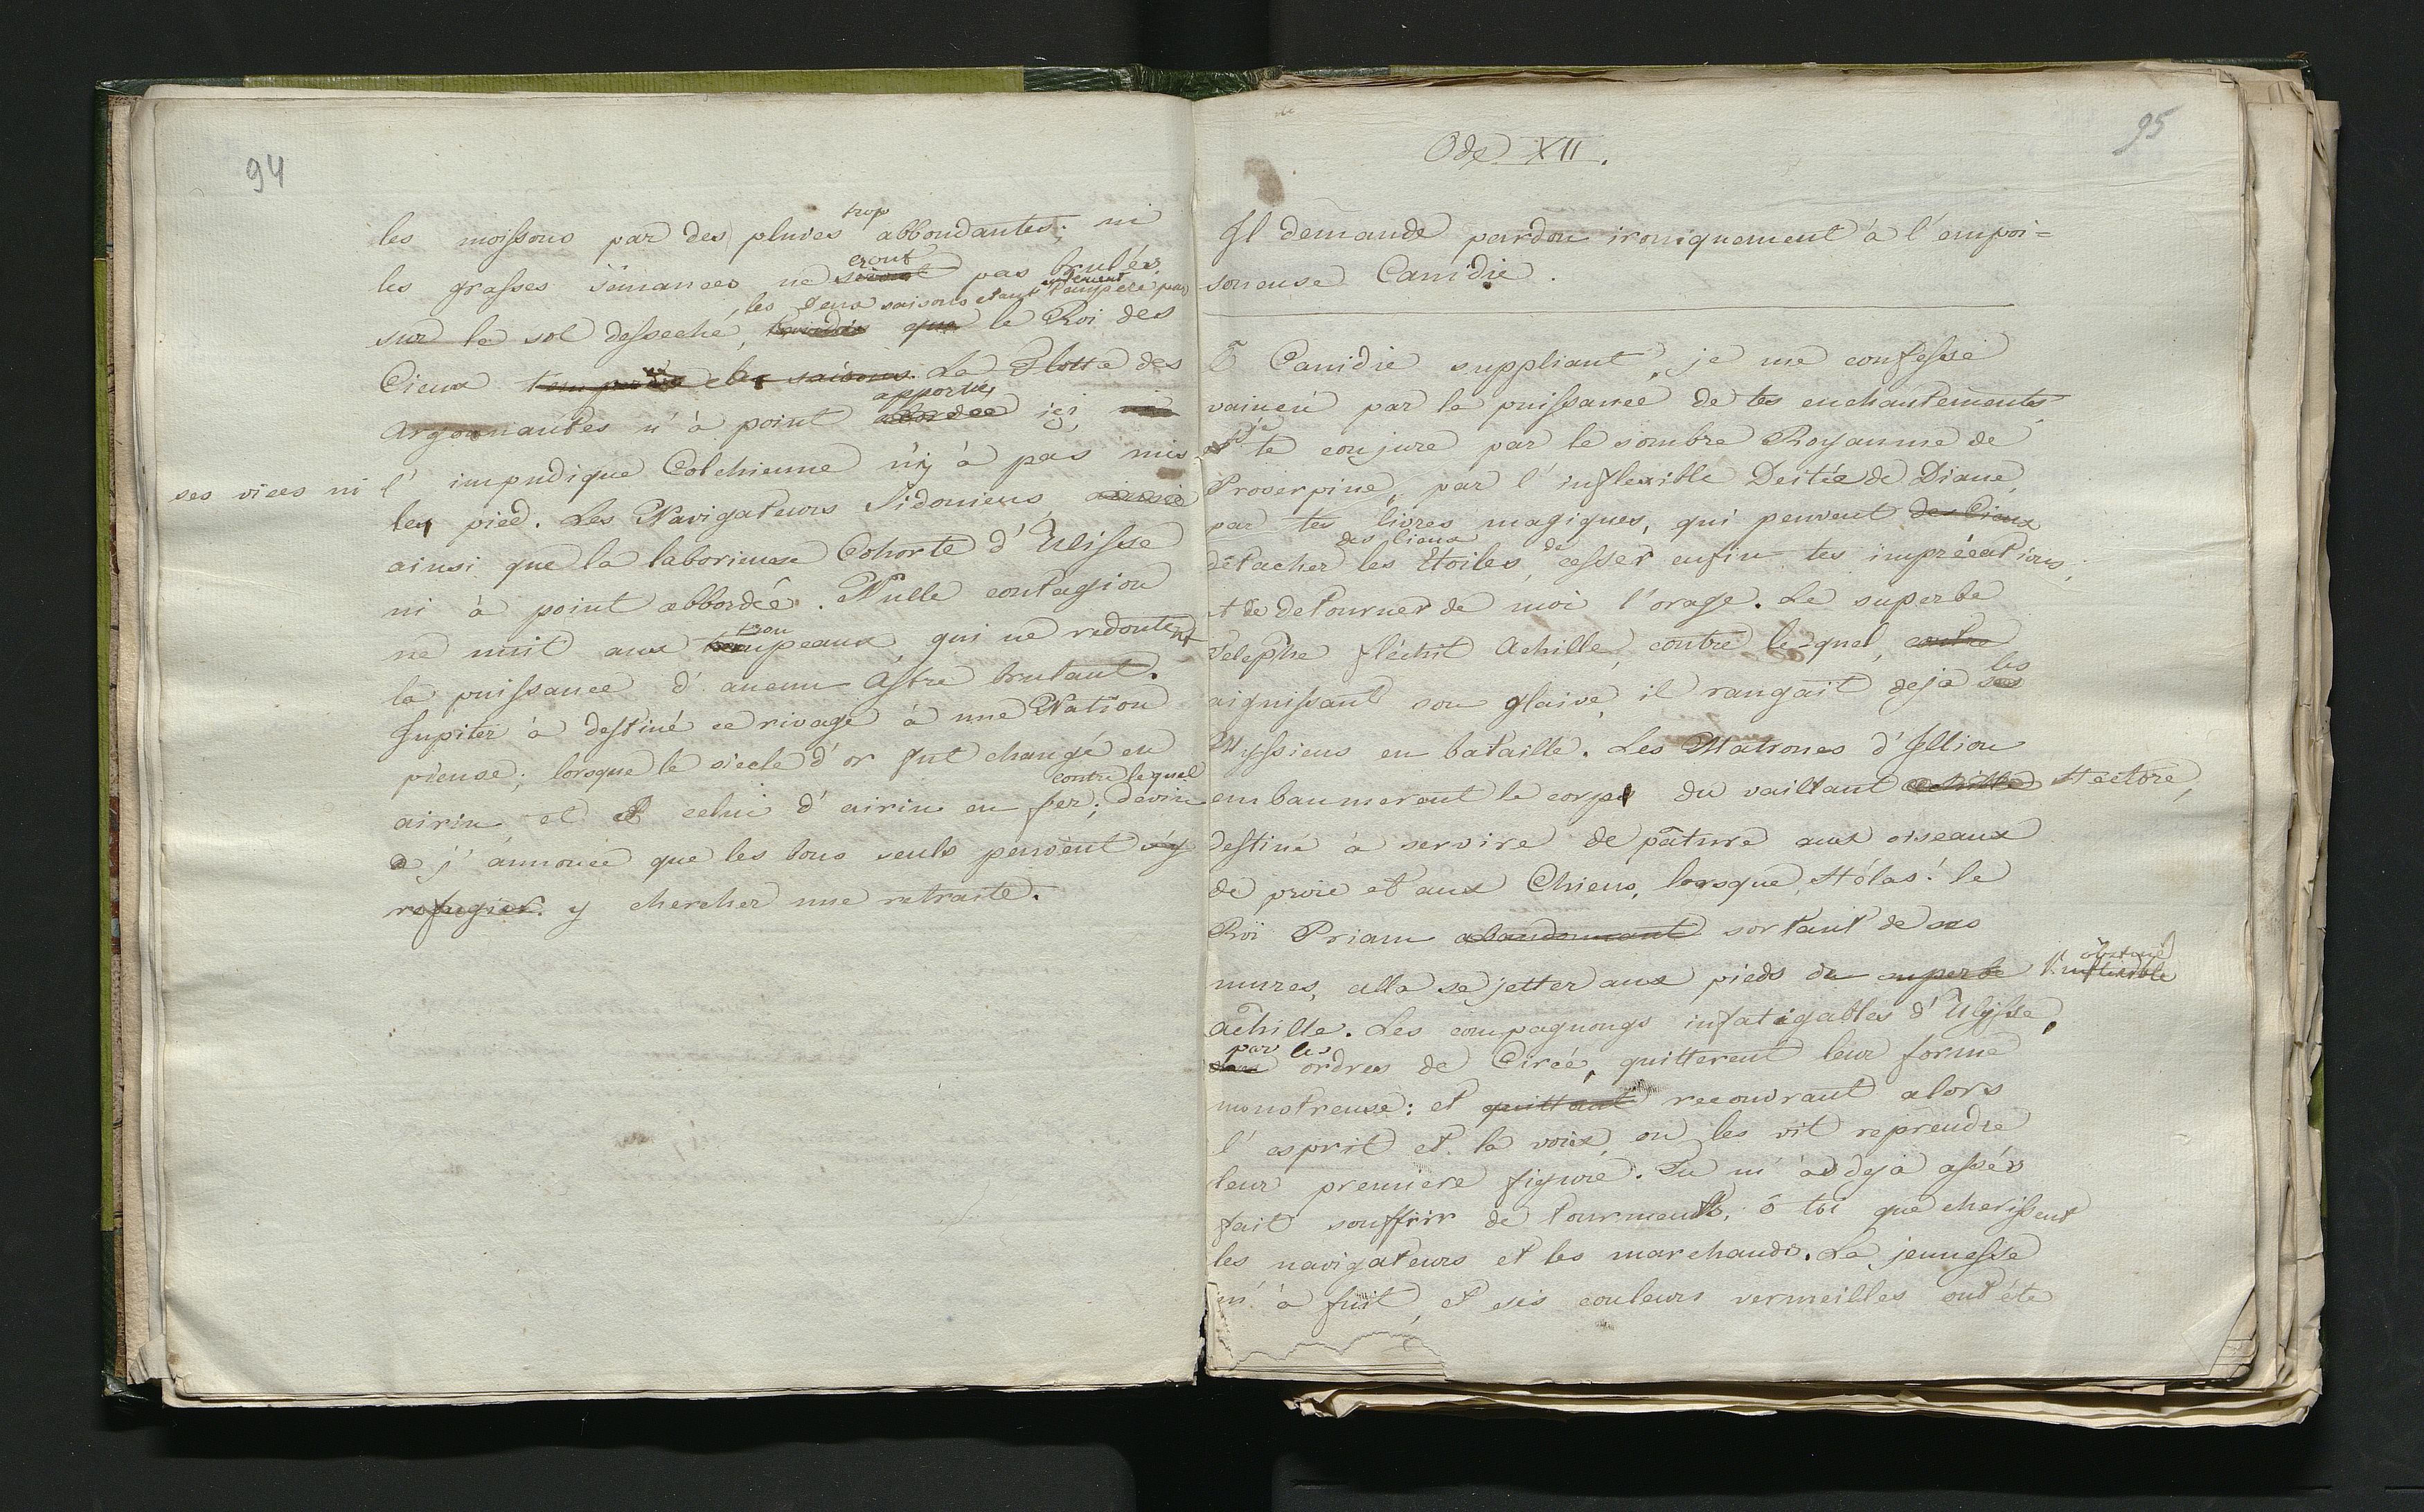 94
les moissons par des pluies trop abbondantes; ni
les grasses sémances ne seront eront pas brulées
sur le sol desseché, les deux saisons etant tempéré par que le Roi des
Cieux temperera les saisons. La Flotte des
Argonnautes n'à point abordée apportés ici, ni
ses vices ni l'impudique Colchienne n'ÿ à pas mis
les pied. Les Navigateurs Sidoniens, ainsie
ainsi que la laborieuse Cohorte d'Ulisse
ni à point abbordée. Nulle contagion
ne nuit aux troupeaux, qui ne redoutent
la puissance d'aucun Astre brulant.
Jupiter à destiné ce rivage à une Nation
pieuse; lorsque le siecle d'or fut changé en
airin, et celui d'airin en fer; contre lequel devin
j'annonce que les bons seuls peuvent s'y
refugier. y chercher une retraite.
95
Ode XII.
Il demande pardon ironiquement à l'empoi=
soneuse Canidie.
Ô Canidie suppliant, je me confesse
vaincu par la puissance de tes enchantements,
et je te conjure par le sombre Royaume de
Proserpine, par l'inflexible Deitée de Diane,
par tes livres magiques, qui peuvent des Cieux
détacher des cieux les Etoiles, de cesser enfin tes imprécations,
et de detourner de moi l'orage. Le superbe
Telephe fléchit Achille, contre le-quel, contre
aiguissant son glaive, il rangait deja ses les
Myssiens en bataille. Les Matrones d'Illion
embaumerent le corps du vaillant Achille Hectore,
destiné à servire de pâture aux oiseaux
de proie et aux Chiens, lorsque, Hélas! le
Roi Priam abandonnant sortant de ses
mures, alla se jetter aux pieds du superbe l'inflexible obstiné
Achille. Les compagnongs infatigables d'Ulysse,
par les ordres de Circé, quitterent leur forme
monstreuse: et quittant recouvrant alors
l'esprit et la voix, on les vit reprendre
leur premiere figure. Tu m'as deja assés
fait souffrir de tourments, ô toi que cherissent
les navigateurs et les marchands. La jeunesse
m'à fuit, et ses couleurs vermeilles ont éte